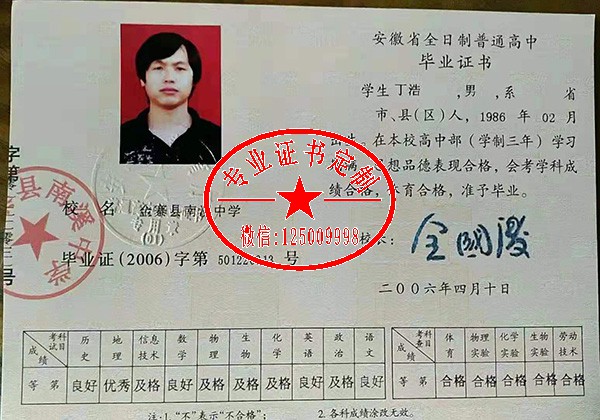 安徽省全日制普通高中
毕业证书
学生丁浩 ,男 ,系 省
市、县(区)人, 1986 年 02 月
出生。在本校高中部(学制三年)学习
期满,思想品德表现合格,会考学科成
绩合格,体育合格,准予毕业。
校长:
二〇〇六年四月十日
校 名 金寨县南溪中学
毕业证(2006)字第 号
专业证书定制
微信:125009998
县南溪中学
成绩 考试科目 历史 地理 信息技术 数学 物理 生物 化学 英语 政治 语文
等 第 良好 优秀 及格 良好 及格 及格 及格 良好 良好 良好
成绩 考查科目 体育 物理实验 化学实验 生物实验 劳动技术
等 第 合格 合格 合格 合格 合格
注:1.“不”表示“不合格”; 2.各科成绩涂改无效。